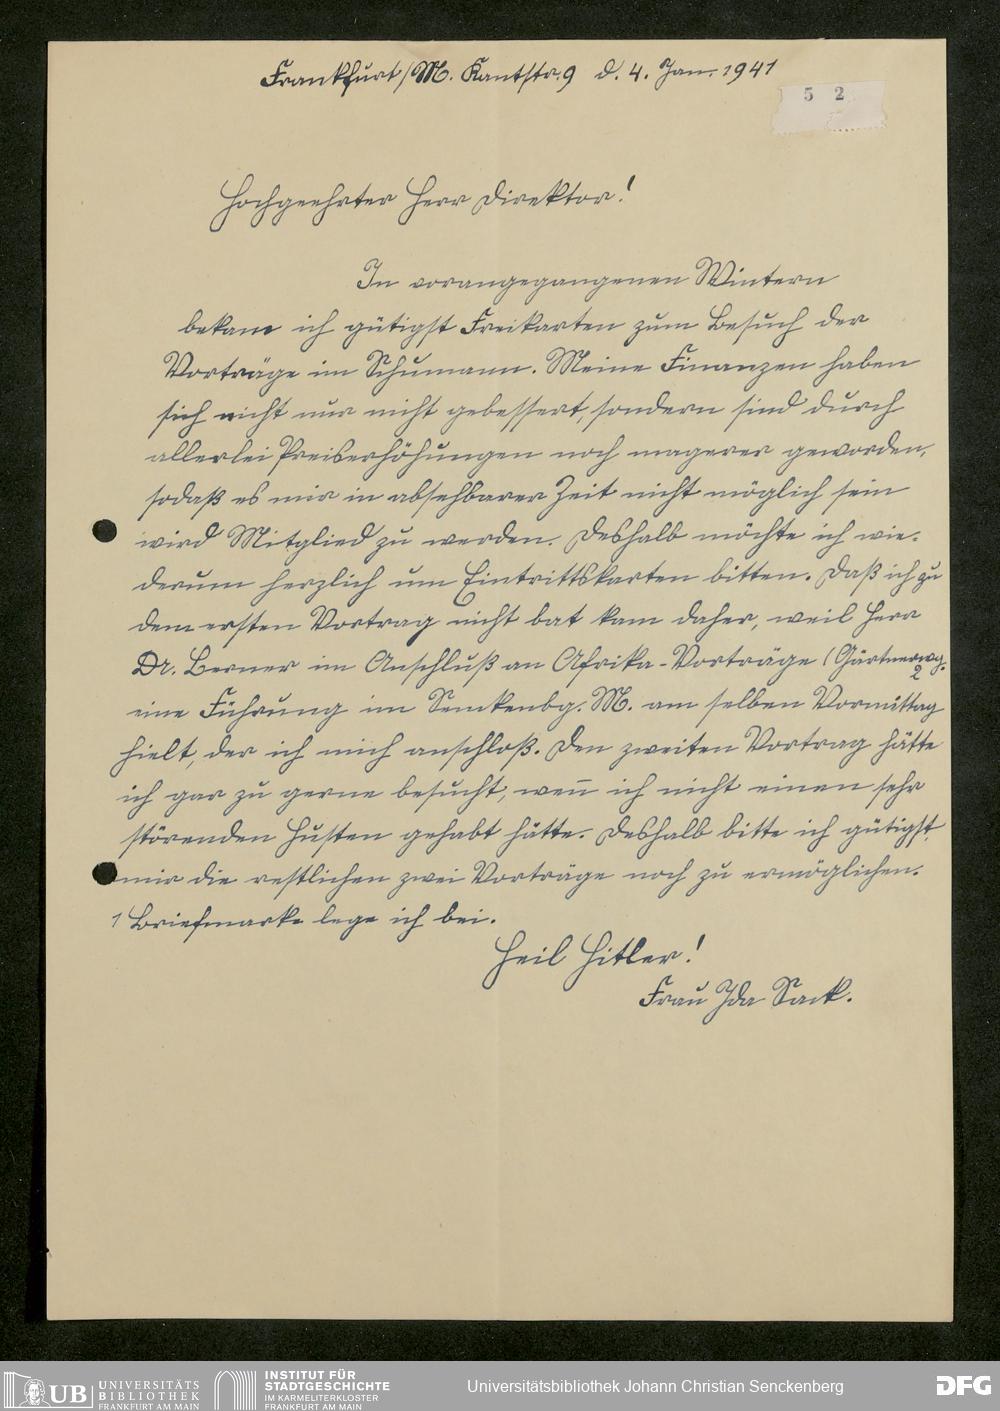 Frankfurt/M. Kantstr. 9 d. 4. Jan. 1941
5 2
Hochgeehrter Herr Direktor!
In vorangegangenen Wintern
bekam ich gütigst Freikarten zum Besuch der
Vorträge im Schumann. Meine Finanzen haben
sich nicht nur nicht gebessert, sondern sind durch
allerlei Preiserhöhungen noch magerer geworden,
sodaß es mir in absehbarer Zeit nicht möglich sein
wird Mitglied zu werden. Deshalb möchte ich wie-
derum herzlich um Eintrittskarten bitten. Daß ich zu
dem ersten Vortrag nicht bat kam daher, weil Herr
Dr. Berner im Anschluß an Afrika-Vorträge (Gärtnerwg.
2
eine Führung im Senkenbg. M. am selben Vormittag
hielt, der ich mich anschloß. Den zweiten Vortrag hätte
ich gar zu gerne besucht, weñ ich nicht einen sehr
störenden Husten gehabt hätte. Deshalb bitte ich gütigst
mir die restlichen zwei Vorträge noch zu ermöglichen.
1 Briefmarke lege ich bei.
Heil Hitler!
Frau Ida Sack.
UB UNIVERSITÄTS
BIBLIOTHEK
FRANKFURT AM MAIN
INSTITUT FÜR
STADTGESCHICHTE
IM KARMELITERKLOSTER
FRANKFURT AM MAIN
Universitätsbibliothek Johann Christian Senckenberg
DFG